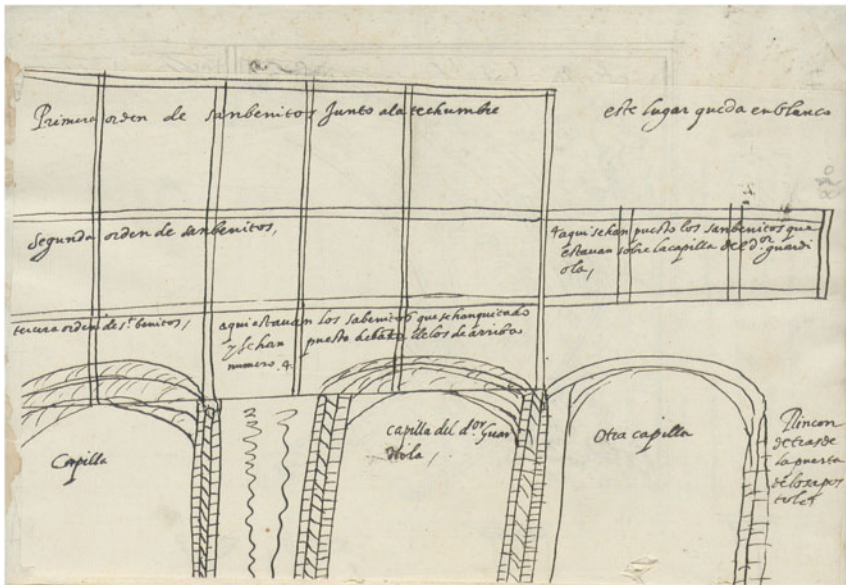 Primera orden de sanbenitos Junto ala techumbre
este lugar queda en blanco
Segunda orden de sanbenitos,
4 aqui se han puesto los sanbenitos que
estauan sobre la capilla del d.or guardi
ola,
tercera orden de s.t benitos,
aqui estauan los sabenitos que se han quitado
y se han puesto debaxo de los de arriba
numero .4.
Capilla
capilla del d.or Guar
diola,
Otra capilla
Rincon
detras de
la puerta
de los apos
toles